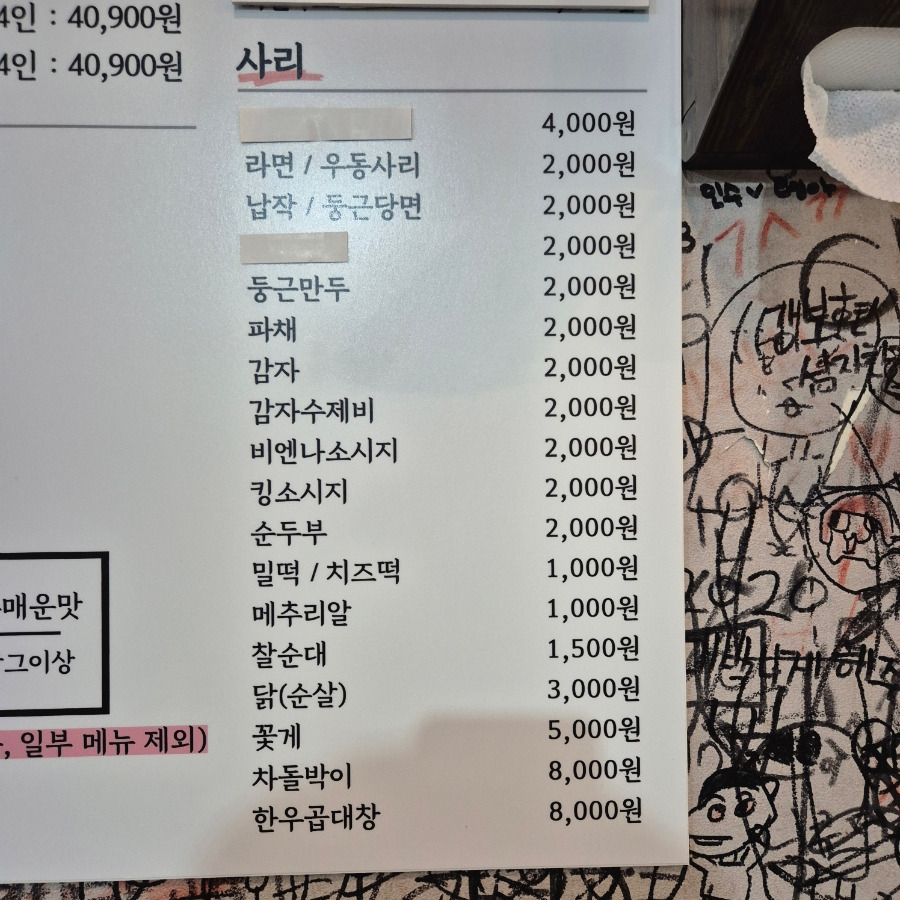 4인 : 40,900원
4인 : 40,900원
사리
4,000원
라면 / 우동사리 2,000원
납작 / 둥근당면 2,000원
2,000원
둥근만두 2,000원
파채 2,000원
감자 2,000원
감자수제비 2,000원
비엔나소시지 2,000원
킹소시지 2,000원
순두부 2,000원
밀떡 / 치즈떡 1,000원
메추리알 1,000원
찰순대 1,500원
닭(순살) 3,000원
꽃게 5,000원
차돌박이 8,000원
한우곱대창 8,000원
매운맛
그이상
, 일부 메뉴 제외)
인수
2020